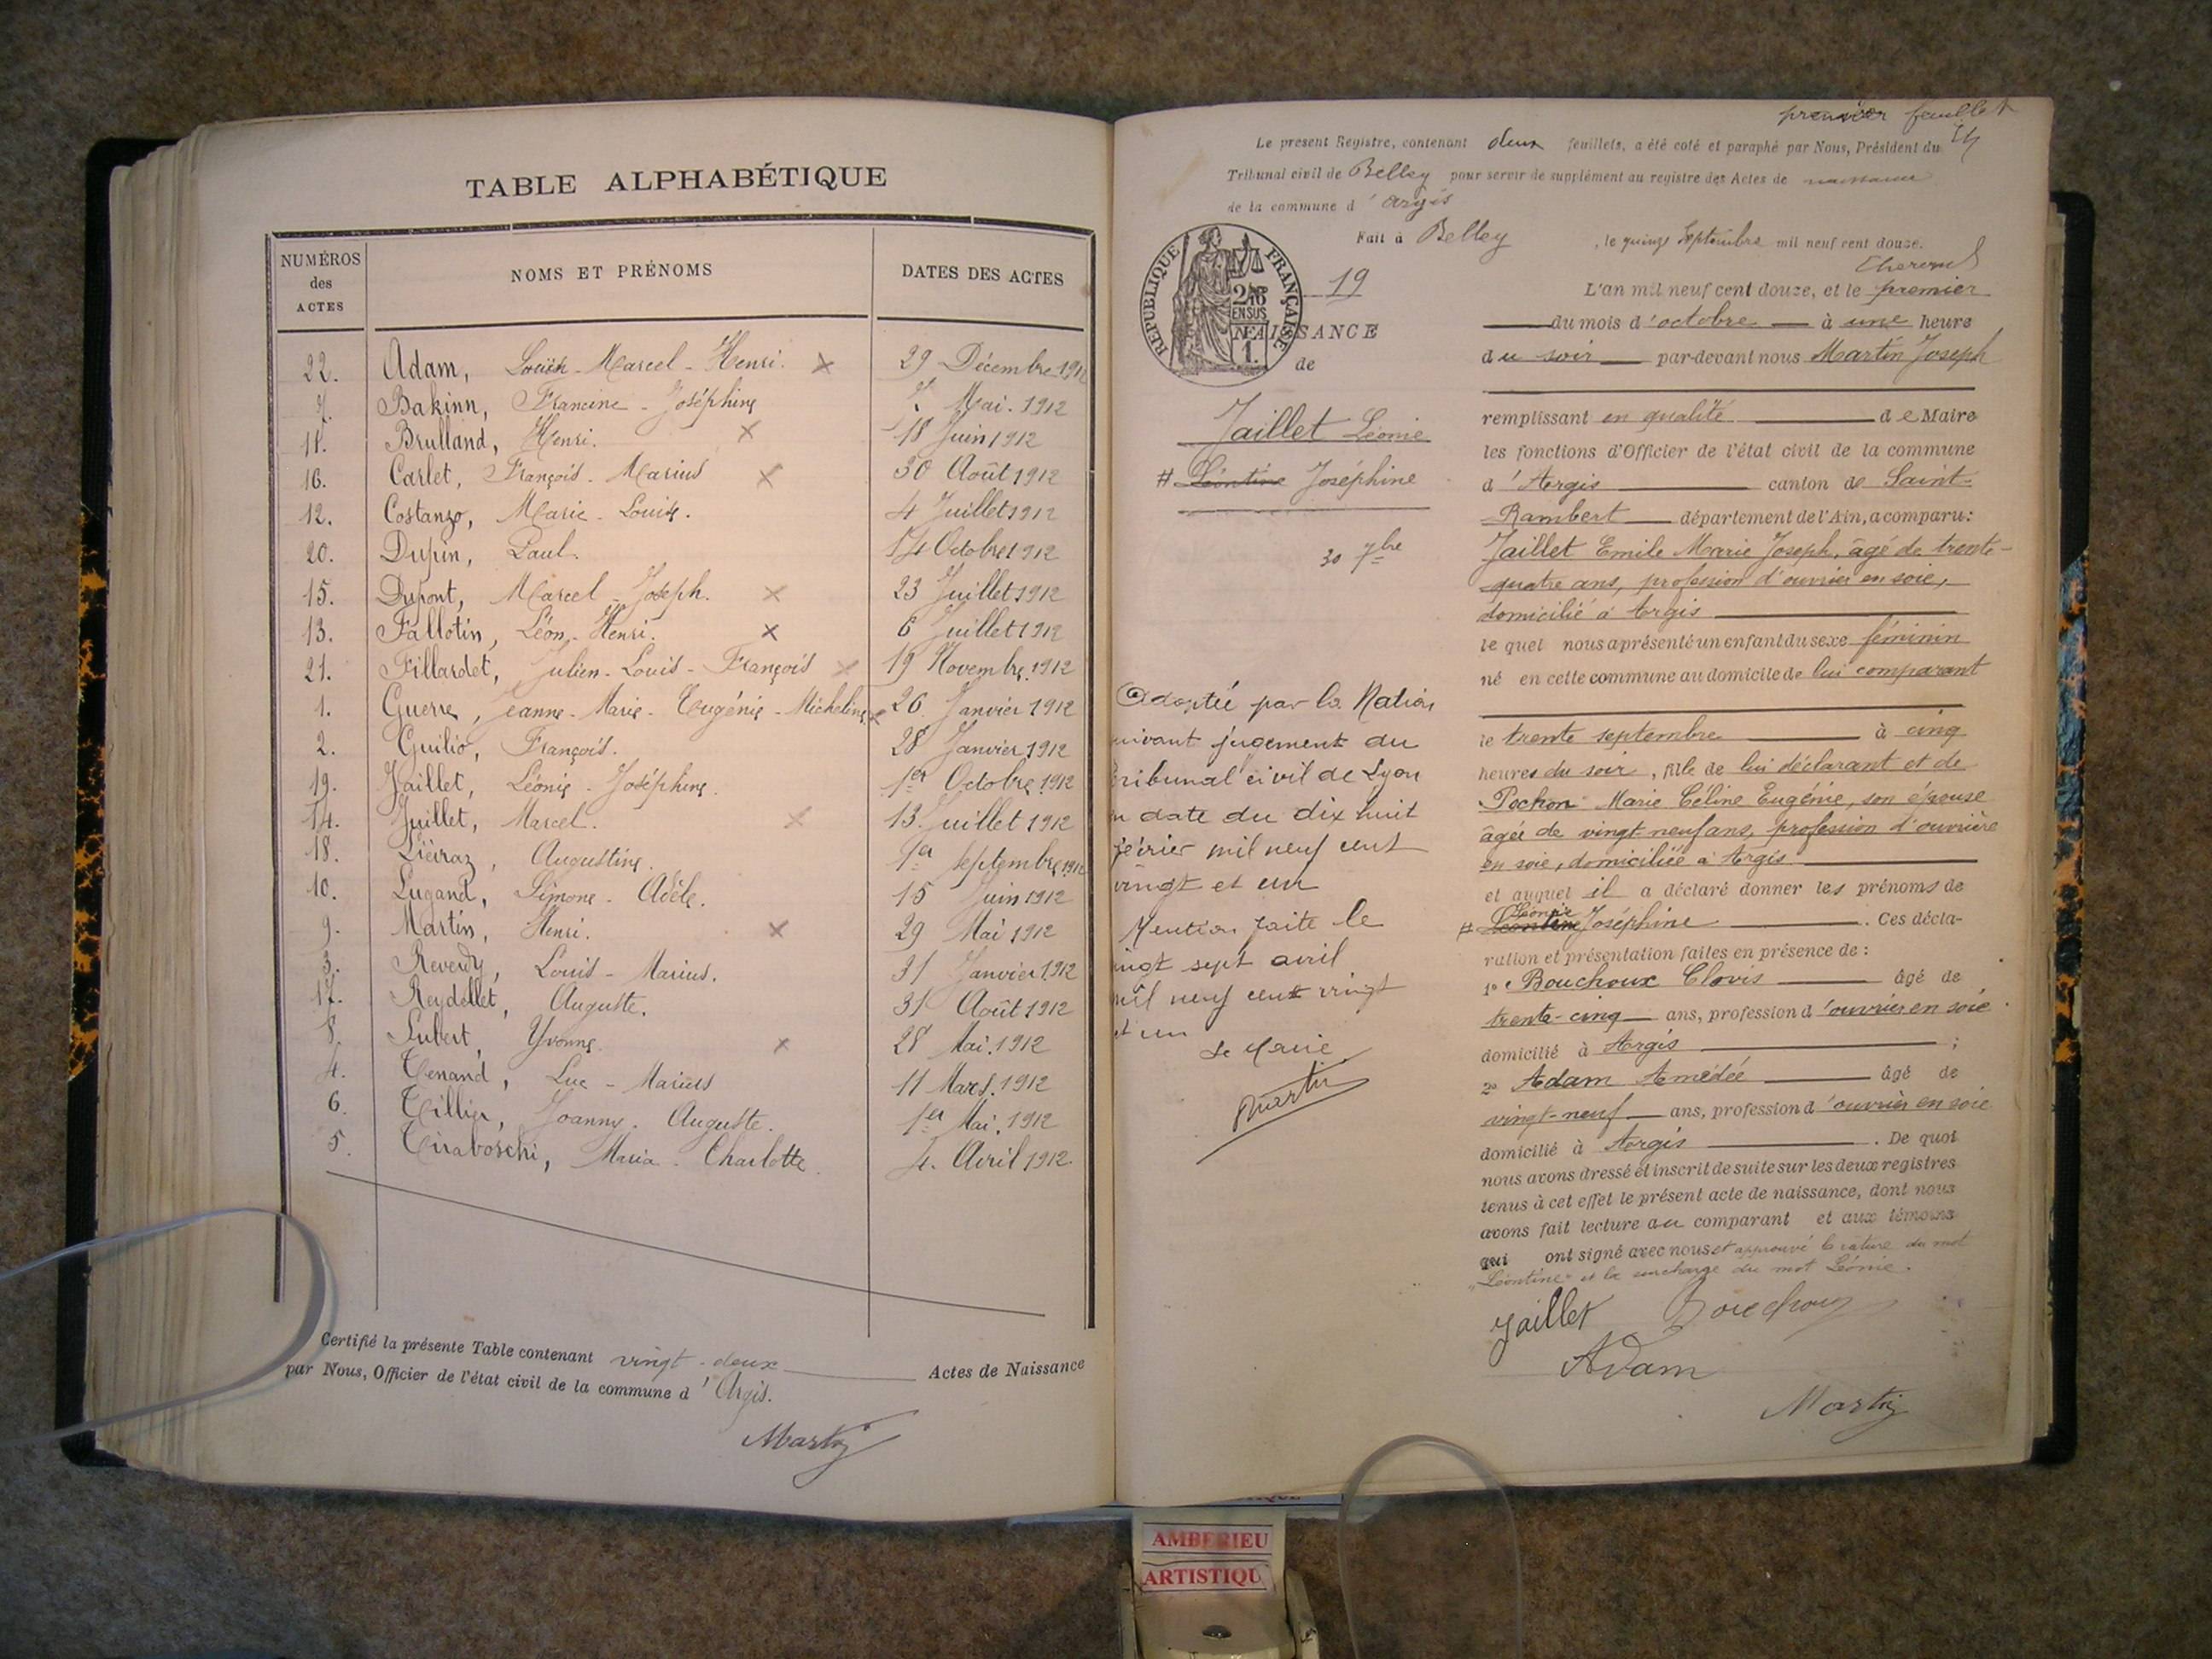 TABLE ALPHABÉTIQUE
NUMÉROS des ACTES NOMS ET PRÉNOMS DATES DES ACTES
22. Adam, Marcel - Henri. 29 Décembre 1912
7. Bakinn, Francine - Joséphine Mai. 1912
11. Brulland, Henri. 18 Juin 1912
16. Carlet, François - Marius 30 Août 1912
12. Costanzo, Marie - Louise. 4 Juillet 1912
20. Dupin, Paul. 14 Octobre 1912
15. Dupont, Marcel - Joseph. 23 Juillet 1912
13. Fallotin, Léon - Henri. 6 Juillet 1912
21. Fillardet, Julien - Louis - François 19 Novembre 1912
1. Guerre, Jeanne - Marie - Eugénie - Micheline 26 Janvier 1912
2. Guilio, François. 28 Janvier 1912
19. Jaillet, Léonie - Joséphine. 1er Octobre 1912
14. Juillet, Marcel. 13 Juillet 1912
18. Augustine. 1er Septembre 1912
10. Lugand, Simone - Adèle. 15 Juin 1912
9. Martin, Henri. 29 Mai 1912
3. Reverdy, Louis - Marius. 31 Janvier 1912
17. Reydellet, Auguste. 31 Août 1912
8. Subert, Yvonne. 28 Mai. 1912
4. Tenand, Luc - Marius 11 Mars. 1912
6. Tillier, Joanny - Auguste. 1er Mai. 1912
5. Tiraboschi, Maria - Charlotte. 4. Avril 1912.
Certifié la présente Table contenant vingt-deux Actes de Naissance
par Nous, Officier de l'état civil de la commune d'Argis.
Martin
premier feuillet
Le présent Registre, contenant deux feuillets, a été coté et paraphé par Nous, Président du
Tribunal civil de Belley pour servir de supplément au registre des Actes de naissance
de la commune d'Argis
Fait à Belley, le quinze Septembre mil neuf cent douze.
RÉPUBLIQUE FRANÇAISE
EN SUS
1.
19
NAISSANCE
de
Jaillet Léonie
# Léontine Joséphine
30 7bre
Adoptée par la Nation
suivant jugement du
tribunal civil de Lyon
en date du dix huit
février mil neuf cent
vingt et un
Mention faite le
vingt sept avril
mil neuf cent vingt
et un
Le Maire
Martin
L'an mil neuf cent douze, et le premier
du mois d'octobre à une heure
du soir par-devant nous Martin Joseph
remplissant en qualité de Maire
les fonctions d'Officier de l'état civil de la commune
d'Argis canton de Saint-
Rambert département de l'Ain, a comparu:
Jaillet Emile Marie Joseph, âgé de trente-
quatre ans, profession d'ouvrier en soie,
domicilié à Argis
lequel nous a présenté un enfant du sexe féminin
né en cette commune au domicile de lui comparant
le trente septembre à cinq
heures du soir, fille de lui déclarant et de
Pochon Marie Céline Eugénie, son épouse
âgée de vingt-neuf ans, profession d'ouvrière
en soie, domiciliée à Argis
et auquel il a déclaré donner les prénoms de
Léonie
# Léontine Joséphine. Ces décla-
ration et présentation faites en présence de:
1º Bouchoux Clovis âgé de
trente-cinq ans, profession d'ouvrier en soie
domicilié à Argis;
2º Adam Amédée âgé de
vingt-neuf ans, profession d'ouvrier en soie
domicilié à Argis. De quoi
nous avons dressé et inscrit de suite sur les deux registres
tenus à cet effet le présent acte de naissance, dont nous
avons fait lecture au comparant et aux témoins
qui ont signé avec nous et approuvé la rature du mot
"Léontine" et la surcharge du mot Léonie.
Jaillet Bouchoux
Adam
Martin
AMBERIEU
ARTISTIQU